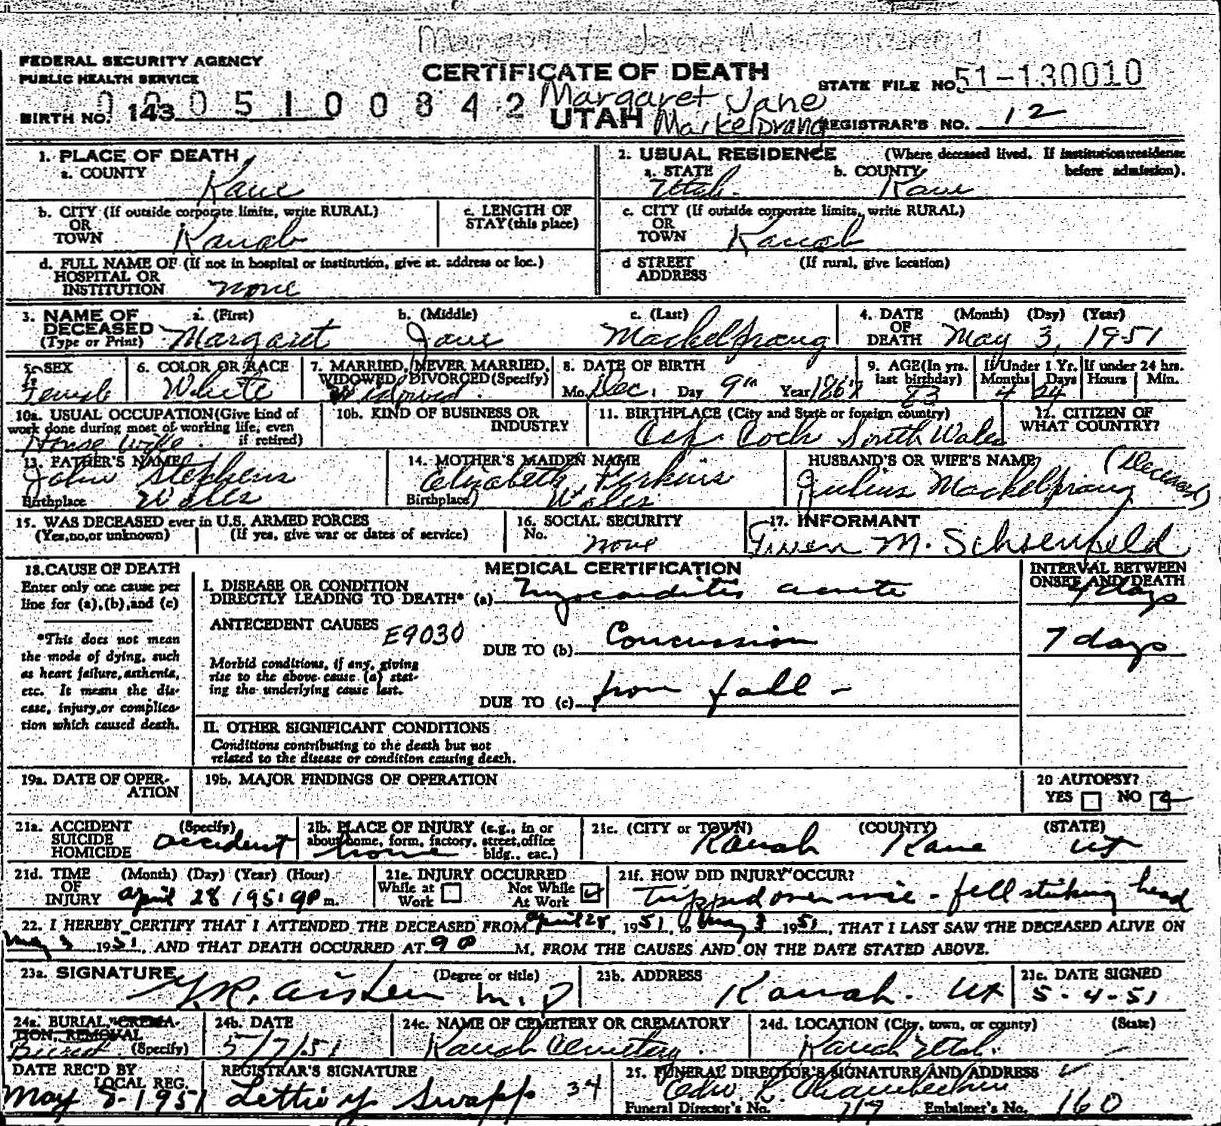 FEDERAL SECURITY AGENCY
PUBLIC HEALTH SERVICE
CERTIFICATE OF DEATH
STATE FILE NO. 51-130010
BIRTH NO. 143 0005100842
Margaret Jane
UTAH Mackelprang
REGISTRAR'S NO. 12
1. PLACE OF DEATH
a. COUNTY Kane
2. USUAL RESIDENCE (Where deceased lived. If institution: residence before admission).
a. STATE Utah. b. COUNTY Kane
b. CITY (If outside corporate limits, write RURAL)
OR
TOWN Kanab
c. LENGTH OF
STAY (this place)
c. CITY (If outside corporate limits, write RURAL)
OR
TOWN Kanab
d. FULL NAME OF (If not in hospital or institution, give st. address or loc.)
HOSPITAL OR
INSTITUTION none
d STREET (If rural, give location)
ADDRESS
3. NAME OF DECEASED (Type or Print)
a. (First) Margaret
b. (Middle) Jane
c. (Last) Mackelprang
4. DATE OF DEATH (Month) (Day) (Year)
May 3, 1951
5. SEX Female
6. COLOR OR RACE White
7. MARRIED, NEVER MARRIED,
WIDOWED, DIVORCED (Specify)
Widowed
8. DATE OF BIRTH
Mo. Dec. Day 9th Year 1867
9. AGE (In yrs. last birthday) 83
If Under 1 Yr. Months 4 Days 24
If under 24 hrs. Hours Min.
10a. USUAL OCCUPATION (Give kind of
work done during most of working life, even
if retired)
House Wife.
10b. KIND OF BUSINESS OR
INDUSTRY
11. BIRTHPLACE (City and State or foreign country)
Coch South Wales
12. CITIZEN OF
WHAT COUNTRY?
13. FATHER'S NAME
John Stephens
Birthplace Wales
14. MOTHER'S MAIDEN NAME
Elizabeth Perkins
Birthplace Wales
HUSBAND'S OR WIFE'S NAME (Deceased)
Julius Mackelprang
15. WAS DECEASED ever in U.S. ARMED FORCES
(Yes, no, or unknown) (If yes, give war or dates of service)
16. SOCIAL SECURITY
No. none
17. INFORMANT
Gwen M. Schoenfeld
18. CAUSE OF DEATH
Enter only one cause per
line for (a), (b), and (c)
*This does not mean
the mode of dying, such
as heart failure, asthenia,
etc. It means the dis-
ease, injury, or complica-
tion which caused death.
MEDICAL CERTIFICATION
INTERVAL BETWEEN
ONSET AND DEATH
I. DISEASE OR CONDITION
DIRECTLY LEADING TO DEATH* (a) Myocarditis acute
days
ANTECEDENT CAUSES E9030
DUE TO (b) Concussion
7 days
Morbid conditions, if any, giving
rise to the above cause (a) stat-
ing the underlying cause last.
DUE TO (c) from fall -
II. OTHER SIGNIFICANT CONDITIONS
Conditions contributing to the death but not
related to the disease or condition causing death.
19a. DATE OF OPER-
ATION
19b. MAJOR FINDINGS OF OPERATION
20 AUTOPSY?
YES NO
21a. ACCIDENT (Specify)
SUICIDE
HOMICIDE
accident
21b. PLACE OF INJURY (e.g., in or
about home, form, factory, street, office
bldg., eac.)
home
21c. (CITY or TOWN) (COUNTY) (STATE)
Kanab Kane UT
21d. TIME OF INJURY (Month) (Day) (Year) (Hour)
April 28 1951 9P m.
21e. INJURY OCCURRED
While at Work Not While At Work
21f. HOW DID INJURY OCCUR?
Tripped over - fell striking head
22. I HEREBY CERTIFY THAT I ATTENDED THE DECEASED FROM April 28, 1951, to May 3 1951, THAT I LAST SAW THE DECEASED ALIVE ON
May 3 1951, AND THAT DEATH OCCURRED AT 9P M, FROM THE CAUSES AND ON THE DATE STATED ABOVE.
23a. SIGNATURE (Degree or title)
Aiken M.D
23b. ADDRESS
Kanab. Ut
23c. DATE SIGNED
5-4-51
24a. BURIAL, CREMA-
TION, REMOVAL
(Specify)
Burial
24b. DATE
5/7/51
24c. NAME OF CEMETERY OR CREMATORY
Kanab Cemetery.
24d. LOCATION (City, town, or county) (State)
Kanab Utah.
DATE REC'D BY
LOCAL REG.
May 8-1951
REGISTRAR'S SIGNATURE
Lettie Y Swapp 34
25. FUNERAL DIRECTOR'S SIGNATURE AND ADDRESS
Chamberlain
Funeral Director's No. 717 Embalmer's No. 160